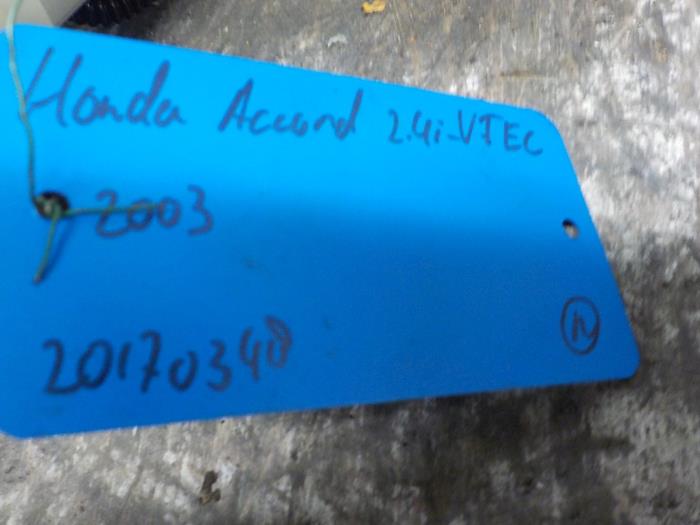 Honda Accord 2.4i-VTEC
2003
20170348